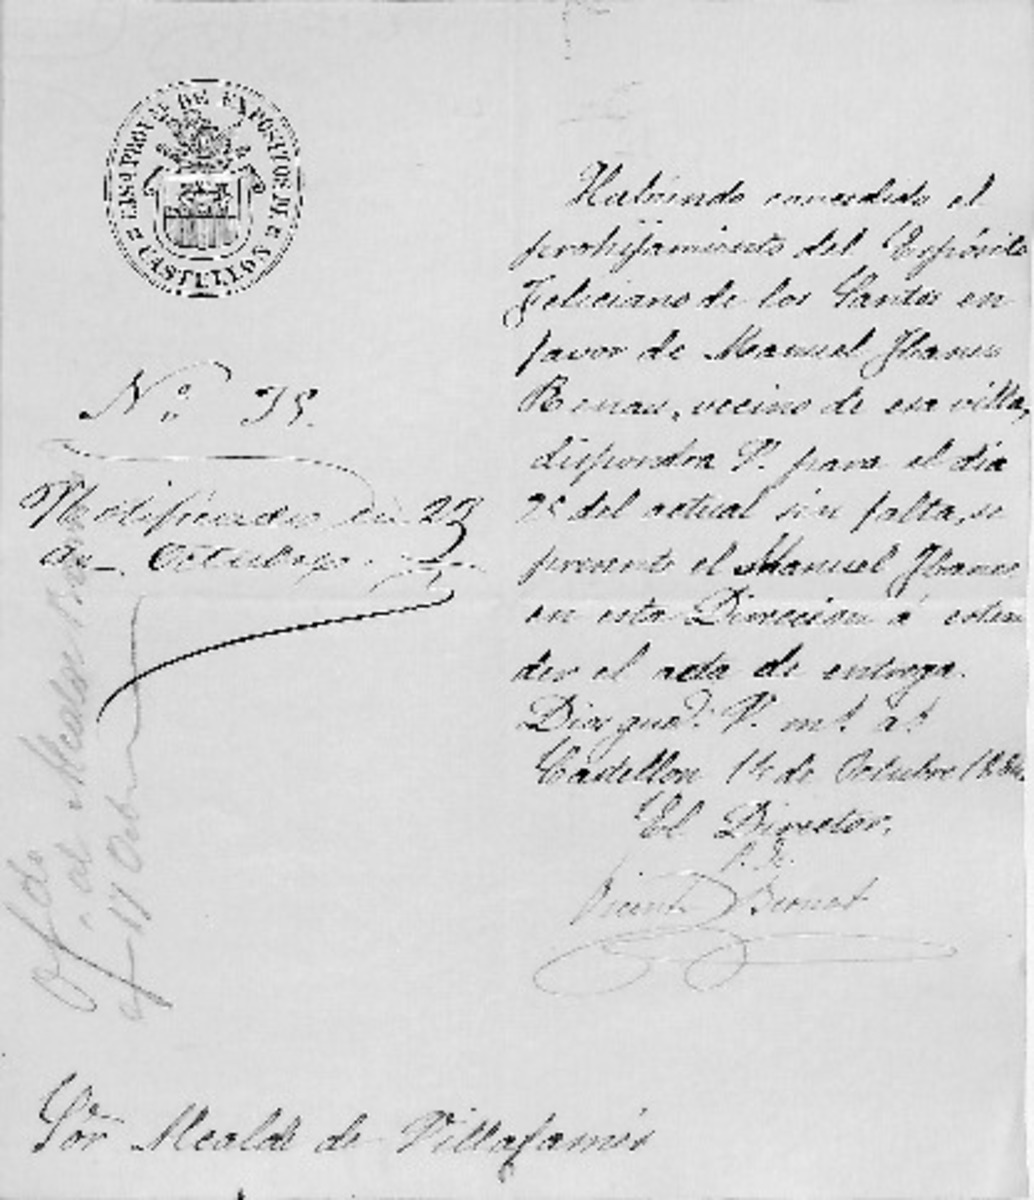 CASA PROVAL DE EXPÓSITOS DE
CASTELLÓN
Nº 75.
Notificado en 23
de Octubre.
Habiendo concedido el
prohijamiento del Expósito
Feliciano de los Santos en
favor de Manuel Ibanes
vecino de esa villa,
dispondra V. para el dia
25 del actual sin falta, se
presente el Manuel Ibanes
en esta Direccion á esten
der el acta de entrega.
Dios gue. V. ms. as.
Castellon 14 de Octubre
El Director,
Vicente Bernat
Ofdo
al Alcalde
17 Octubre
Sor Alcalde de Villafamés